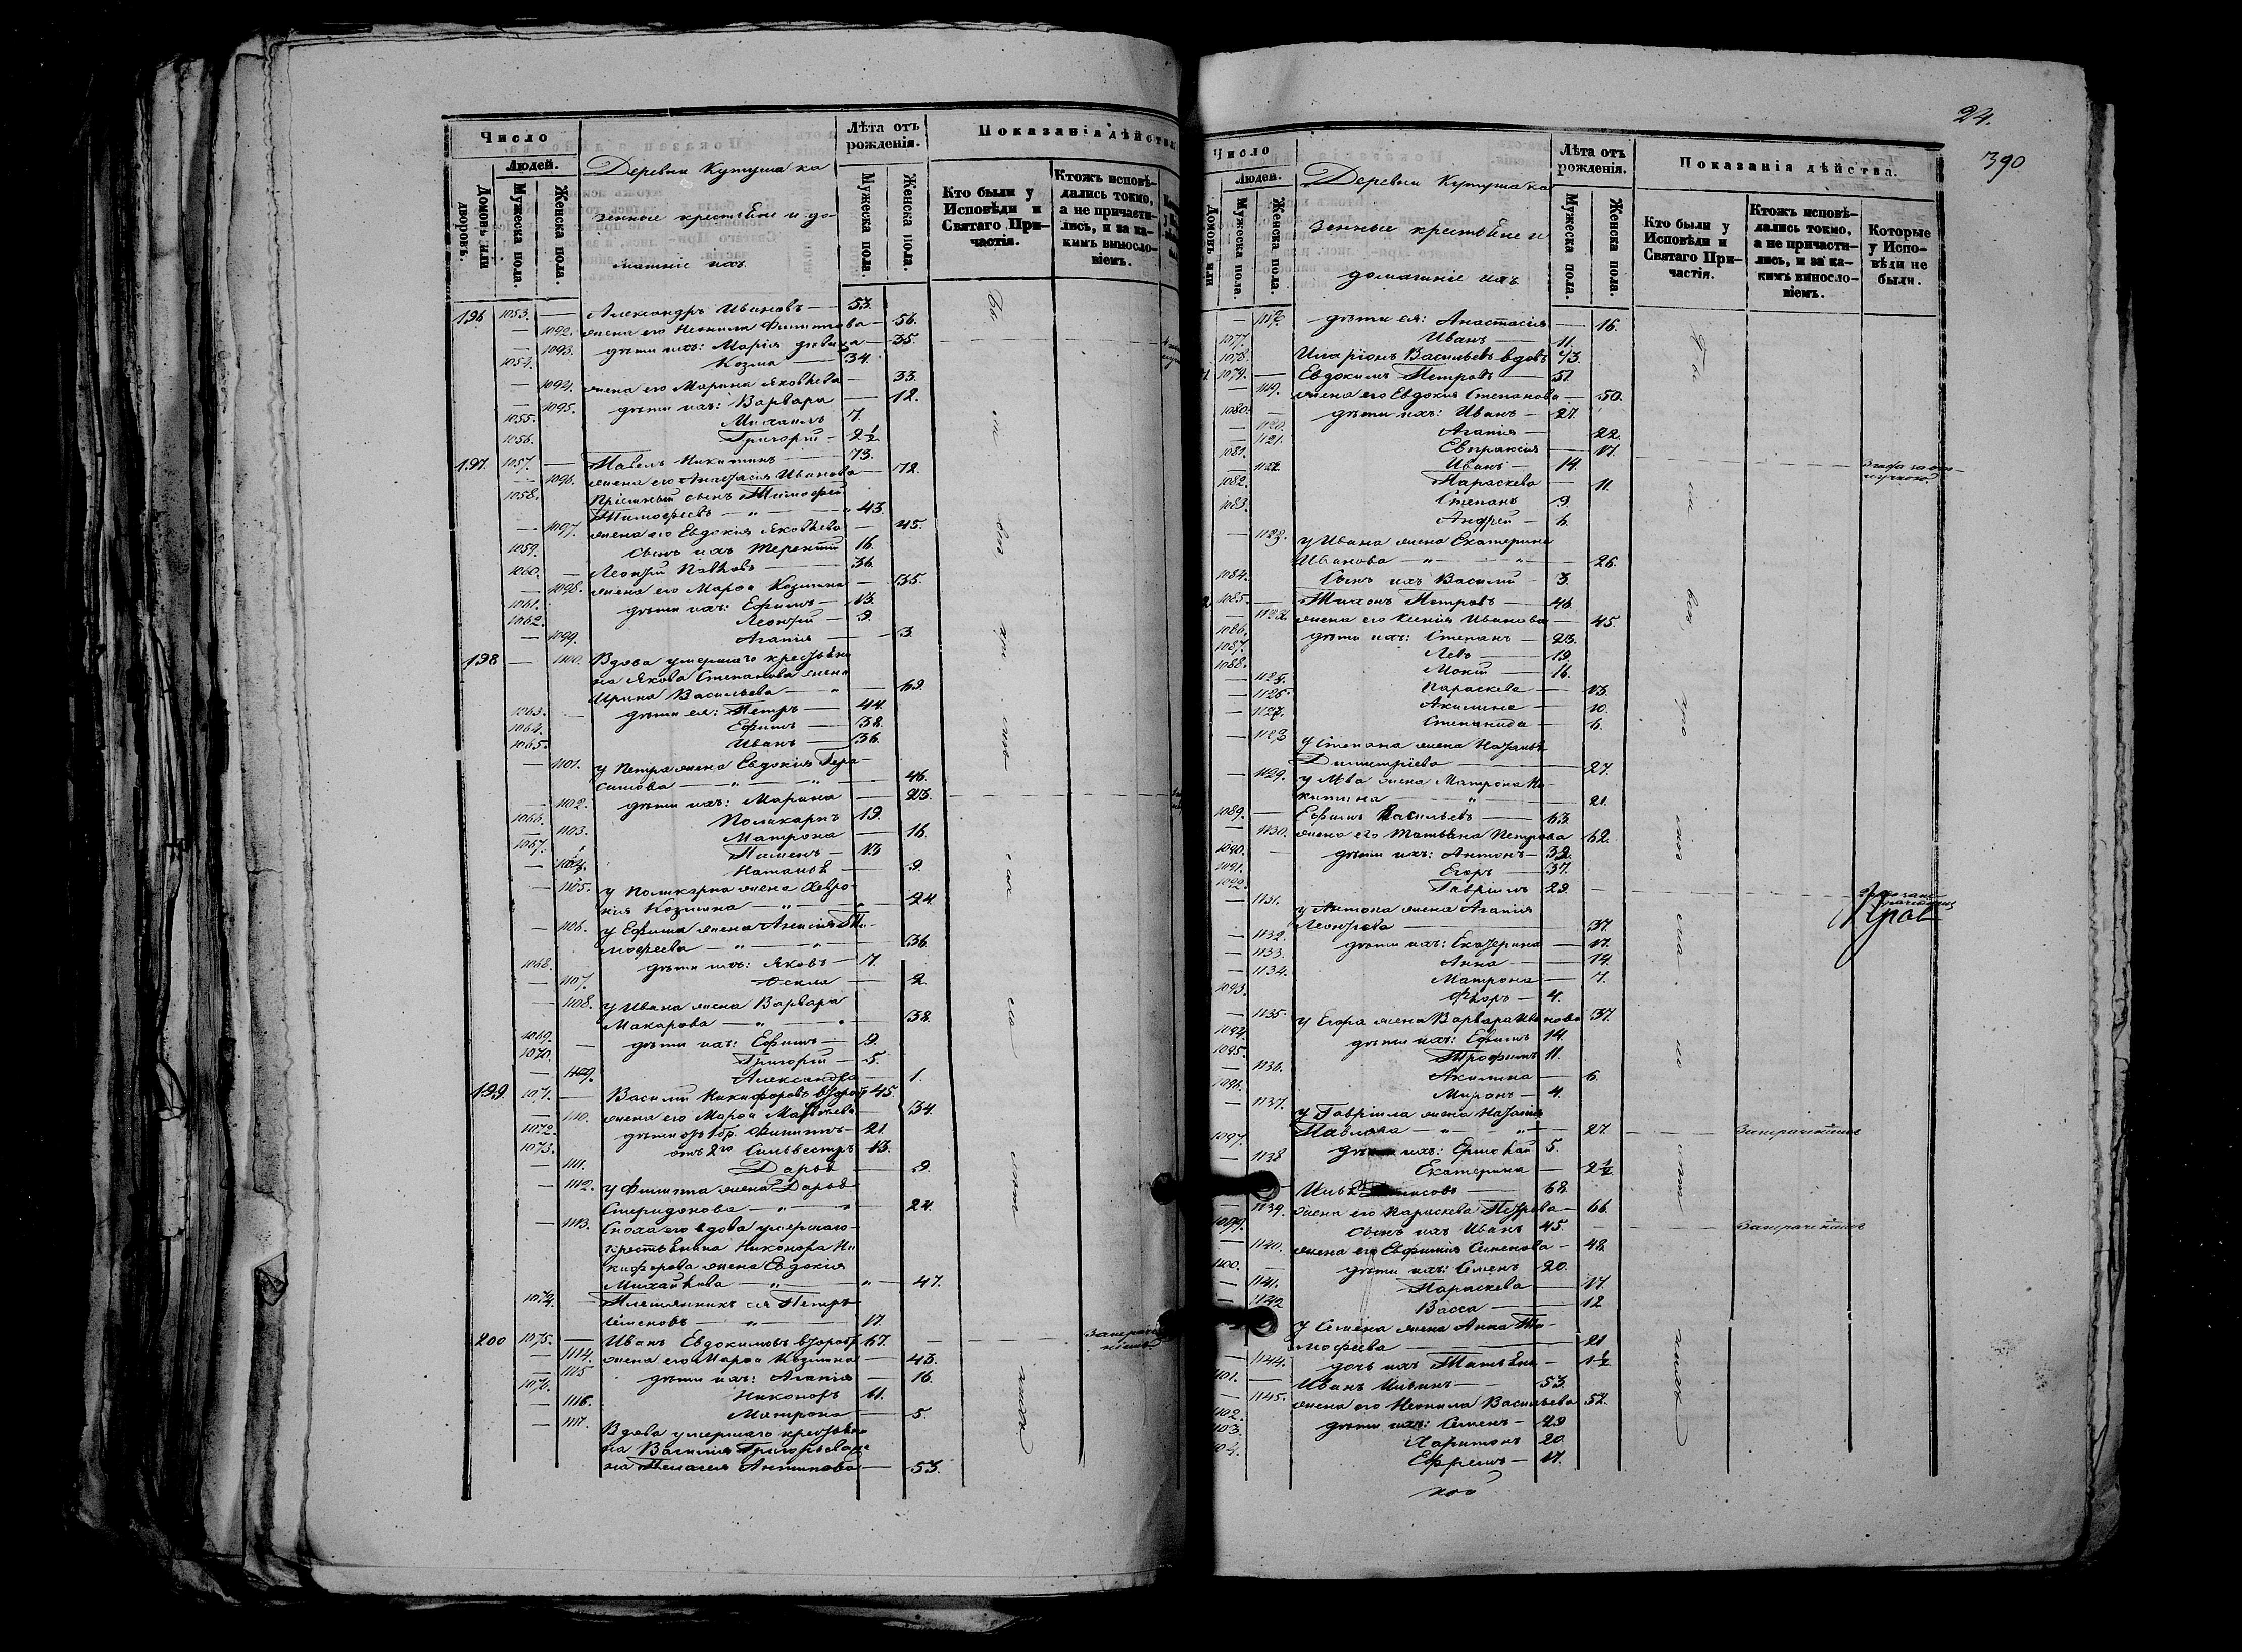 Число
Людей.
Домовъ или дворовъ.
Мужеска пола.
Женска пола.
Деревни Кутуша ка
зенные крестьѣне и до
машніе ихъ
Лѣта отъ рожденія.
Мужеска пола.
Женска пола.
Показанія дѣйства
Кто были у Исповѣди и Святаго Причастія.
Ктожъ исповѣдались токмо, а не причастились, и за какимъ винословіемъ.
196 1053. — Александръ Ивановъ — 53.
— 1092. жена его Неонила Филиппова — 56.
— 1093. дѣти ихъ: Марія дѣвица — 35.
1054. Козма — 34.
— 1094. жена его Марина Яковлева — 33.
— 1095. дѣти ихъ: Варвара — 12.
1055. Михаилъ 7
1056. Григорій — 2½
197. 1057. — Павелъ Никитинъ — 73.
— 1096. жена его Анастасія Иванова — 72.
1058. Пріемный сынъ Тимофей
Тимофеевъ — „ — „ 43.
— 1097. жена его Евдокия Яковлева — 45.
1059. сынъ ихъ Терентій 16.
1060. — Леонтій Павловъ — 36.
— 1098. жена его Марфа Козмина — 35.
1061. дѣти ихъ: Ефимъ — 13.
1062. Леонтій — 9.
— 1099. Агапія — 3.
198 — 1100. Вдова умершаго крестьѣни
на Якова Степанова жена
Ирина Васильева — „ — 69.
1063. — дѣти ея: Петръ — 44.
1064. Ефимъ — 38.
1065. Иванъ — 36.
— 1101. у Петра жена Евдокия Гера
симова — „ — „ — 46.
— 1102. дѣти ихъ: Марина — 23.
1066. Поликарпъ 19.
— 1103. Матрона — 16.
1067. Пименъ — 13
— 1104. Наталья — 9.
— 1105. у Поликарпа жена Февро
нія Козмина — „ — „ 24
— 1106. у Ефима жена Анисія Ти
мофеева — „ — „ — 36.
1068. дѣти ихъ: Яковъ — 7.
— 1107. Фекла — 2.
— 1108. у Ивана жена Варвара
Макарова — „ — „ 38.
1069. — дѣти ихъ: Ефимъ — 9.
1070. Григорій — 5.
— 1109. Александра — 1.
199. 1071. — Василій Никифоровъ второбр 45.
— 1110. жена его Марфа Матвѣева — 34.
1072. дѣти отъ 1 бр. Филиппъ — 21
1073. отъ 2го Сильвестръ 13.
— 1111. Дарья — 9.
— 1112. у Филиппа жена Дарья
Спиридонова — „ — „ 24.
— 1113. Сноха его вдова умершаго
крестьѣнина Никонора Ни
кифорова жена Евдокія
Михайлова — „ — „ — 47.
1074. Племянникъ ея Петръ
Семеновъ — „ — 17.
200 1075. — Иванъ Евдокимовъ второбр 67.
— 1114. жена его Марфа Козмина — 43.
— 1115 дѣти ихъ: Агапія — 16.
1076. Никоноръ 11.
— 1116. Матрона — 5.
— 1117. Вдова умершаго крестьѣни
на Василія Григорьева же
на Пелагея Антипова — 53.
24.
390
Число
Людей.
Домовъ или
Мужеска пола.
Женска пола.
Деревни Кутуша ка
зенные крестьѣне и
домашніе ихъ
Лѣта отъ рожденія.
Мужеска пола.
Женска пола.
Показанія дѣйства.
Кто были у Исповѣди и Святаго Причастія.
Ктожъ исповѣдались токмо, а не причастились, и за какимъ винословіемъ.
Которые у Исповѣди не были.
— 1118. дѣти ея: Анастасія — 16.
1077. Иванъ — 11.
1078. Иларіонъ Васильевъ вдовъ 43.
1079. — Евдокимъ Петровъ — 51.
— 1119. жена его Евдокия Степанова — 50.
1080. — дѣти ихъ: Иванъ — 27.
— 1120. Агапія — 22.
— 1121. Евпраксія — 17.
1081. Иванъ — 14.
— 1122. Параскева — 11.
1082. Степанъ 9.
1083. Андрей — 6.
— 1123. у Ивана жена Екатерина
Иванова — „ — „ — 26.
1084. Сынъ ихъ Василій 3.
1085. — Тихонъ Петровъ — 46.
— 1124. жена его Ксенія Иванова — 45.
1086. дѣти ихъ: Степанъ — 23.
1087. Левъ — 19.
1088. Мокій — 16.
— 1125. Параскева — 13.
— 1126. Акилина — 10.
— 1127. Степанида — 6.
— 1128 у Степана жена Наталья
Димитріева — 27.
— 1129. у Льва жена Матрона Ни
китина — „ — 21.
1089. — Ефимъ Васильевъ — 63.
— 1130. жена его Татьѣна Петрова 62.
1090. — дѣти ихъ: Антонъ — 39.
1091. Егоръ — 37.
1092. Гавріилъ 29.
— 1131. у Антона жена Агапія
Леонтьева — 37.
— 1132. дѣти ихъ: Екатерина — 17.
— 1133. Анна — 14.
— 1134. Матрона — 7.
1093. Флоръ — 4.
— 1135. у Егора жена Варвара Иванова 37.
1094. дѣти ихъ: Ефимъ 14.
1095. Трофимъ 11.
— 1136. Акилина — 6.
1096. Миронъ — 4.
— 1137. у Гавріила жена Наталія
Павлова — „ — „ — 27. Запрачкіимъ
1097. дѣти ихъ: Ермолай 5.
— 1138 Екатерина — 2½
Илья — 68.
— 1139. жена его Параскева Петрова — 66.
1099. сынъ ихъ Иванъ 45.
— 1140. жена его Евфимія Семенова — 48.
1100. — дѣти ихъ: Семенъ 20.
— 1141. Параскева — 17.
— 1142 Васса — 12
у Семена жена Анна Ти
мофеева — 21
— 1144. дочь ихъ Татьѣна — 1½
1101. — Иванъ Ильинъ — 53.
— 1145. жена его Неонила Васильева 52.
1102. дѣти ихъ: Семенъ — 29
1103. Харитонъ 20.
1104. Ефремъ — 17.